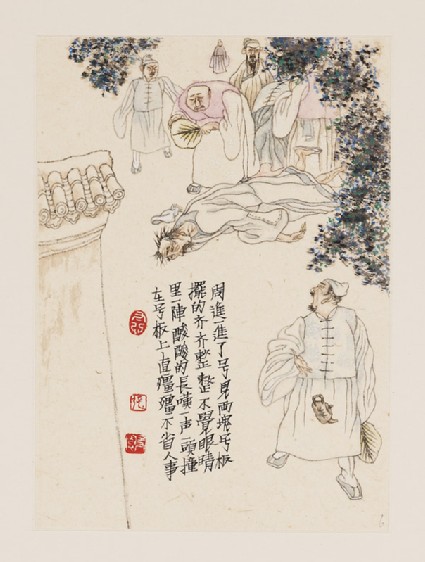 周進一進了号見两塊号板
擺的齐齐整整不覺眼睛
里一陣酸酸的長嘆一声一頭撞
在号板上直僵僵不省人事